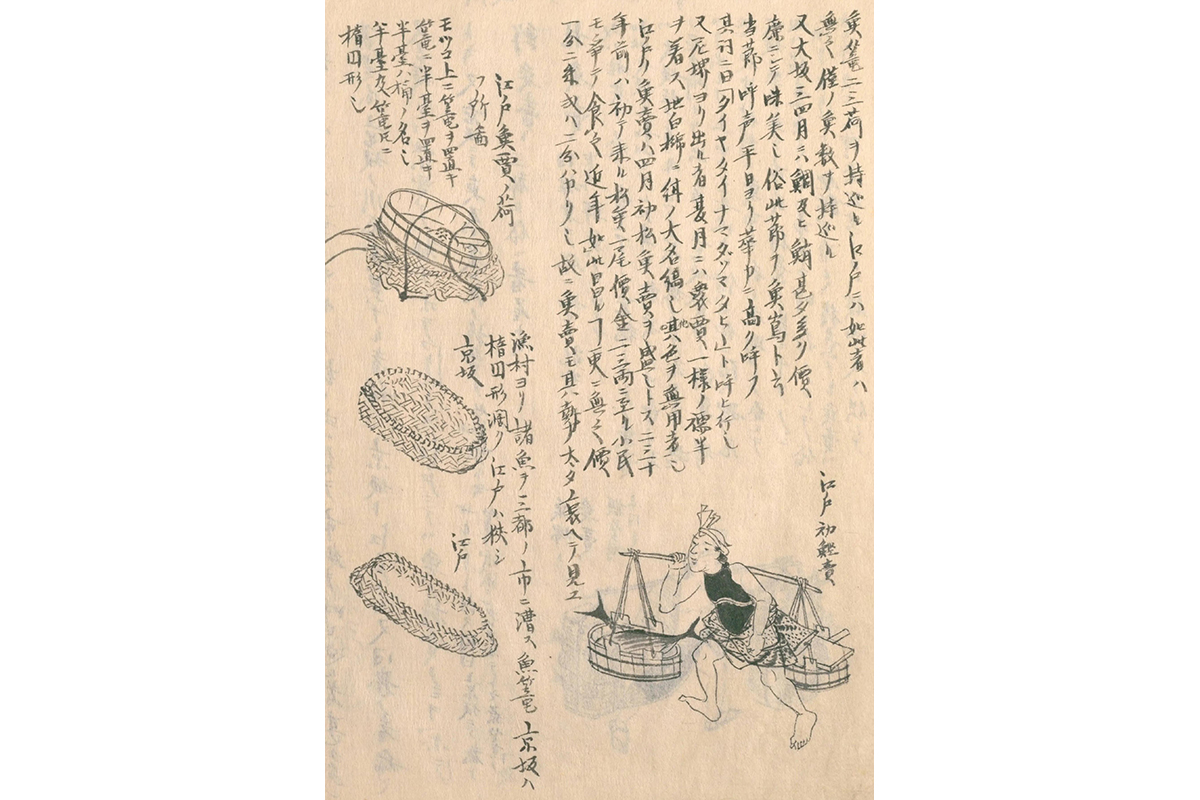 魚篭二三荷ヲ持巡ル江戸ニハ如此者ハ
無之僅ノ魚数ヲ持巡ル
又大坂三四月ニハ鯛及ヒ鮹甚タ多ク價
廉ニシテ味美シ俗此節ヲ魚嶌ト云
当節呼声平日ヨリ華カニ高ク呼フ
其詞ニ曰「タイヤタイナマダコ
又尼堺ヨリ出ル者夏月ニハ衆賈一様ノ襦半
ヲ着ス地白緜ニ 大名縞シ 色ヲ無用者シ
江戸ノ魚賣ハ四月初松魚賣ヲ盛シトス二三十
年前ハ初テ来ル松魚一尾價金二三両ニ至ル小民
モ争テ食之近年如此昌ル丁更ニ無之價
一分二朱或ハ二分ハカリシ故ニ魚賣モ其勢太タ衰ヘテ見ユ
江戸初鰹賣
漁村ヨリ諸魚ヲ三都ノ市ニ漕ス魚篭京坂ハ
楕円形濶ク江戸ハ狹シ
京坂
江戸
江戸魚賈ノ荷
フ所啚
モツコ上ニ篭ヲ置キ
篭ニ半臺ヲ置キ
半臺ハ桶ノ名シ
半臺及篭トモニ
楕円形シ